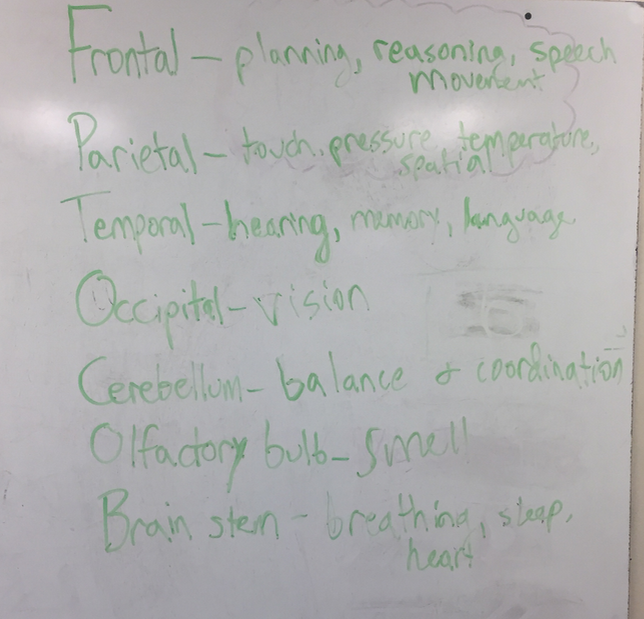 Frontal – planning, reasoning, speech
movement
Parietal – touch, pressure, temperature,
spatial
Temporal – hearing, memory, language
Occipital – vision
Cerebellum – balance & coordination
Olfactory bulb – smell
Brain stem – breathing, sleep,
heart